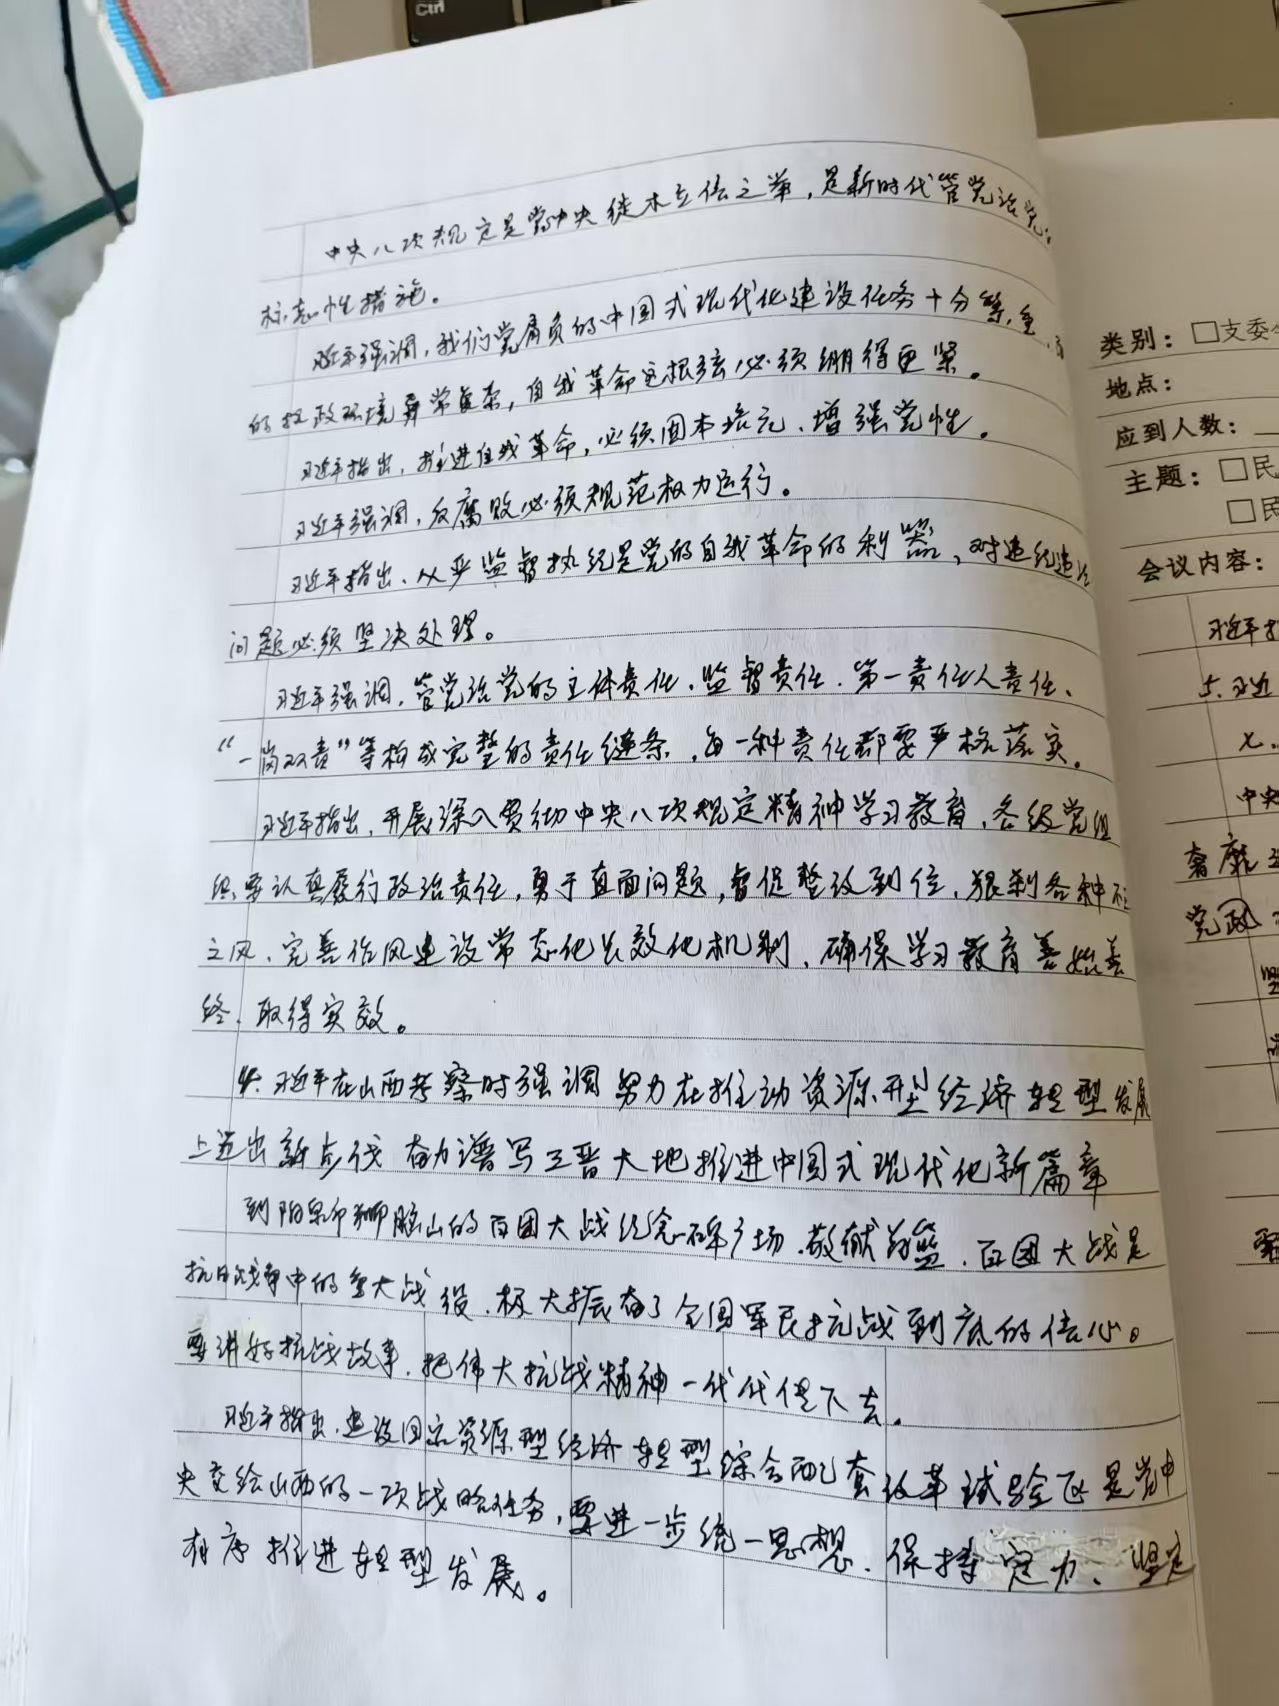 Ctrl
中央八项规定是党中央徙木立信之举，是新时代管党治党
标志性措施。
习近平强调，我们党肩负的中国式现代化建设任务十分繁重，
的执政环境异常复杂，自我革命这根弦必须绷得更紧。
习近平指出，推进自我革命，必须固本培元、增强党性。
习近平强调，反腐败必须规范权力运行。
习近平指出，从严监督执纪是党的自我革命的利器，对违纪违法
问题必须坚决处理。
习近平强调，管党治党的主体责任、监督责任、第一责任人责任、
“一岗双责”等构成完整的责任链条，每一种责任都要严格落实。
习近平指出，开展深入贯彻中央八项规定精神学习教育，各级党组
织要认真履行政治责任，勇于直面问题，督促整改到位，狠刹各种不正
之风，完善作风建设常态化长效化机制，确保学习教育善始善
终、取得实效。
4. 习近平在山西考察时强调 努力在推动资源型经济转型发展
上迈出新步伐 奋力谱写三晋大地推进中国式现代化新篇章
到阳泉市狮脑山的百团大战纪念碑广场，敬献花篮，百团大战是
抗日战争中的重大战役，极大振奋了全国军民抗战到底的信心。
要讲好抗战故事，把伟大抗战精神一代代传下去。
习近平指出，建设国家资源型经济转型综合配套改革试验区是党中
央交给山西的一项战略任务，要进一步统一思想、保持定力、坚定
有序推进转型发展。
类别：□支委
地点：
应到人数：
主题：□民
□民
会议内容：
习近平指
5. 习近
七、
中央
奢靡
党政